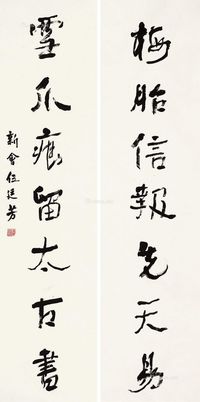 梅胎信報先天易
雪爪痕留太古書
新會伍廷芳